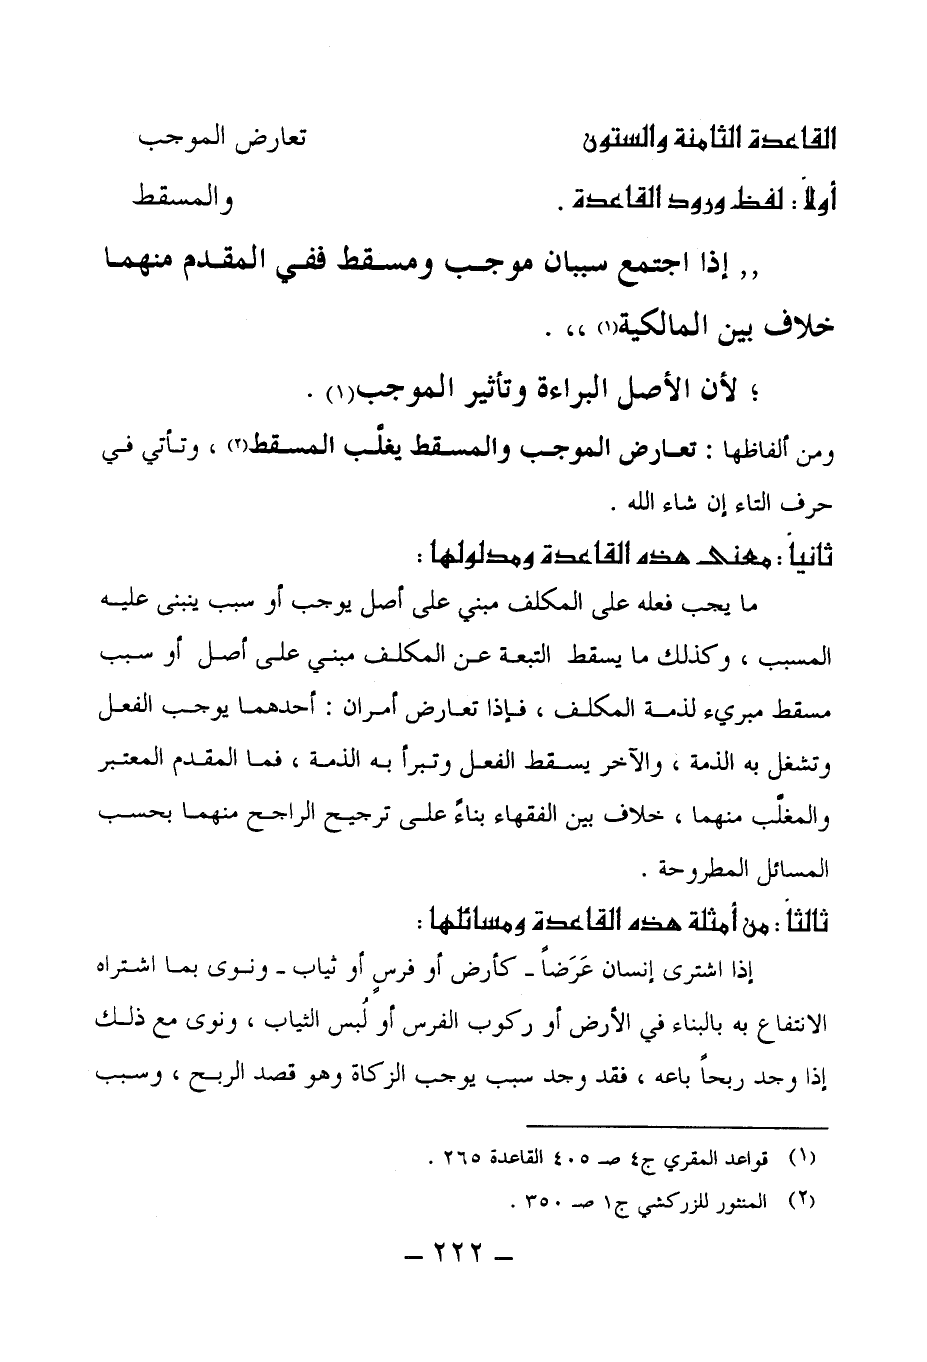 القاعدة الثامنة والستون تعارض الموجب
أولاً : لفظ ورود القاعدة . والمسقط
,, إذا اجتمع سببان موجب ومسقط ففي المقدم منهما
خلاف بين المالكية(١) ،، .
؛ لأن الأصل البراءة وتأثير الموجب(١) .
ومن ألفاظها : تعارض الموجب والمسقط يغلَّب المسقط(٢) ، وتأتي في
حرف التاء إن شاء الله .
ثانياً : معنى هذه القاعدة ومدلولها :
ما يجب فعله على المكلف مبني على أصل يوجب أو سبب ينبنى عليه
المسبب ، وكذلك ما يسقط التبعة عن المكلف مبني على أصل أو سبب
مسقط مبريء لذمة المكلف ، فإذا تعارض أمران : أحدهما يوجب الفعل
وتشغل به الذمة ، والآخر يسقط الفعل وتبرأ به الذمة ، فما المقدم المعتبر
والمغلَّب منهما ، خلاف بين الفقهاء بناءً على ترجيح الراجح منهما بحسب
المسائل المطروحة .
ثالثاً : من أمثلة هذه القاعدة ومسائلها :
إذا اشترى إنسان عَرَضاً - كأرض أو فرسٍ أو ثياب - ونوى بما اشتراه
الانتفاع به بالبناء في الأرض أو ركوب الفرس أو لُبس الثياب ، ونوى مع ذلك
إذا وجد ربحاً باعه ، فقد وجد سبب يوجب الزكاة وهو قصد الربح ، وسبب
(١) قواعد المقري ج٤ صـ ٤٠٥ القاعدة ٢٦٥ .
(٢) المنثور للزركشي ج١ صـ ٣٥٠ .
- ٢٢٢ -